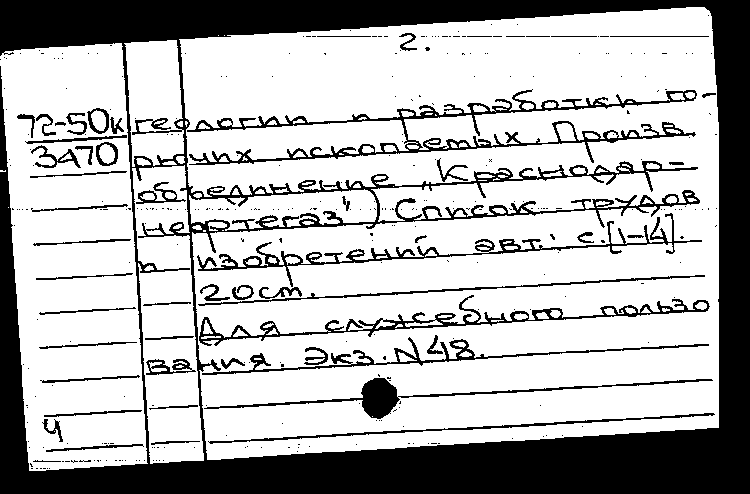 2.
72-50к геологии и разработки го-
3470 рючих ископаемых. Произв.
объединение „Краснодар-
нефтегаз") Список трудов
и изобретений авт.: с.[1-14].
20см.
Для служебного пользо
вания. Экз. N48.
Ч